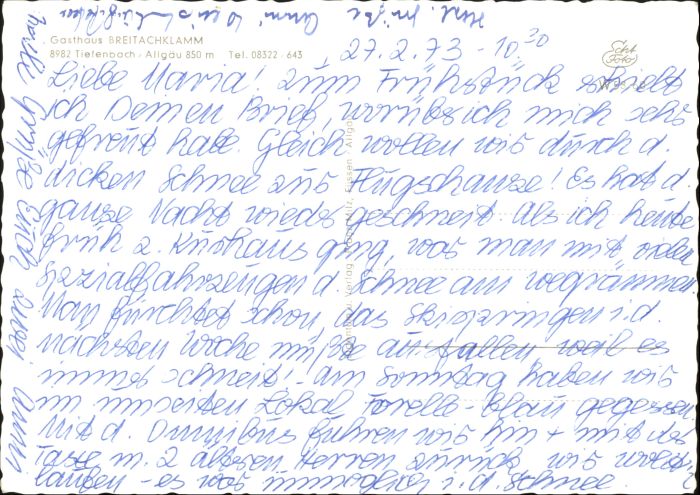 Herzl. Grüße
Gasthaus BREITACHKLAMM
8982 Tiefenbach - Allgäu 850 m Tel. 08322 - 643
Echt Foto
27.2.73 - 10.30
Liebe Maria! Zum Frühstück erhielt
ich Deinen Brief, worüber ich mich sehr
gefreut habe. Gleich wollen wir durch d.
dicken Schnee zur Flugschanze! Es hat d.
ganze Nacht wieder geschneit als ich heute
früh z. Kurhaus ging, war man mit vielen
Spezialfahrzeugen d. Schnee am wegräumen
Man fürchtet schon, das Skispringen i. d.
nächsten Woche müßte ausfallen weil es
immer schneit! - Am Sonntag haben wir
in unserem Lokal Forelle - blau gegessen
Mit d. Omnibus fuhren wir hin + mit der
Taxe m. 2 älteren Herren zurück wir wollten
laufen - es war unmöglich i. d. Schnee.
Grüße Euch